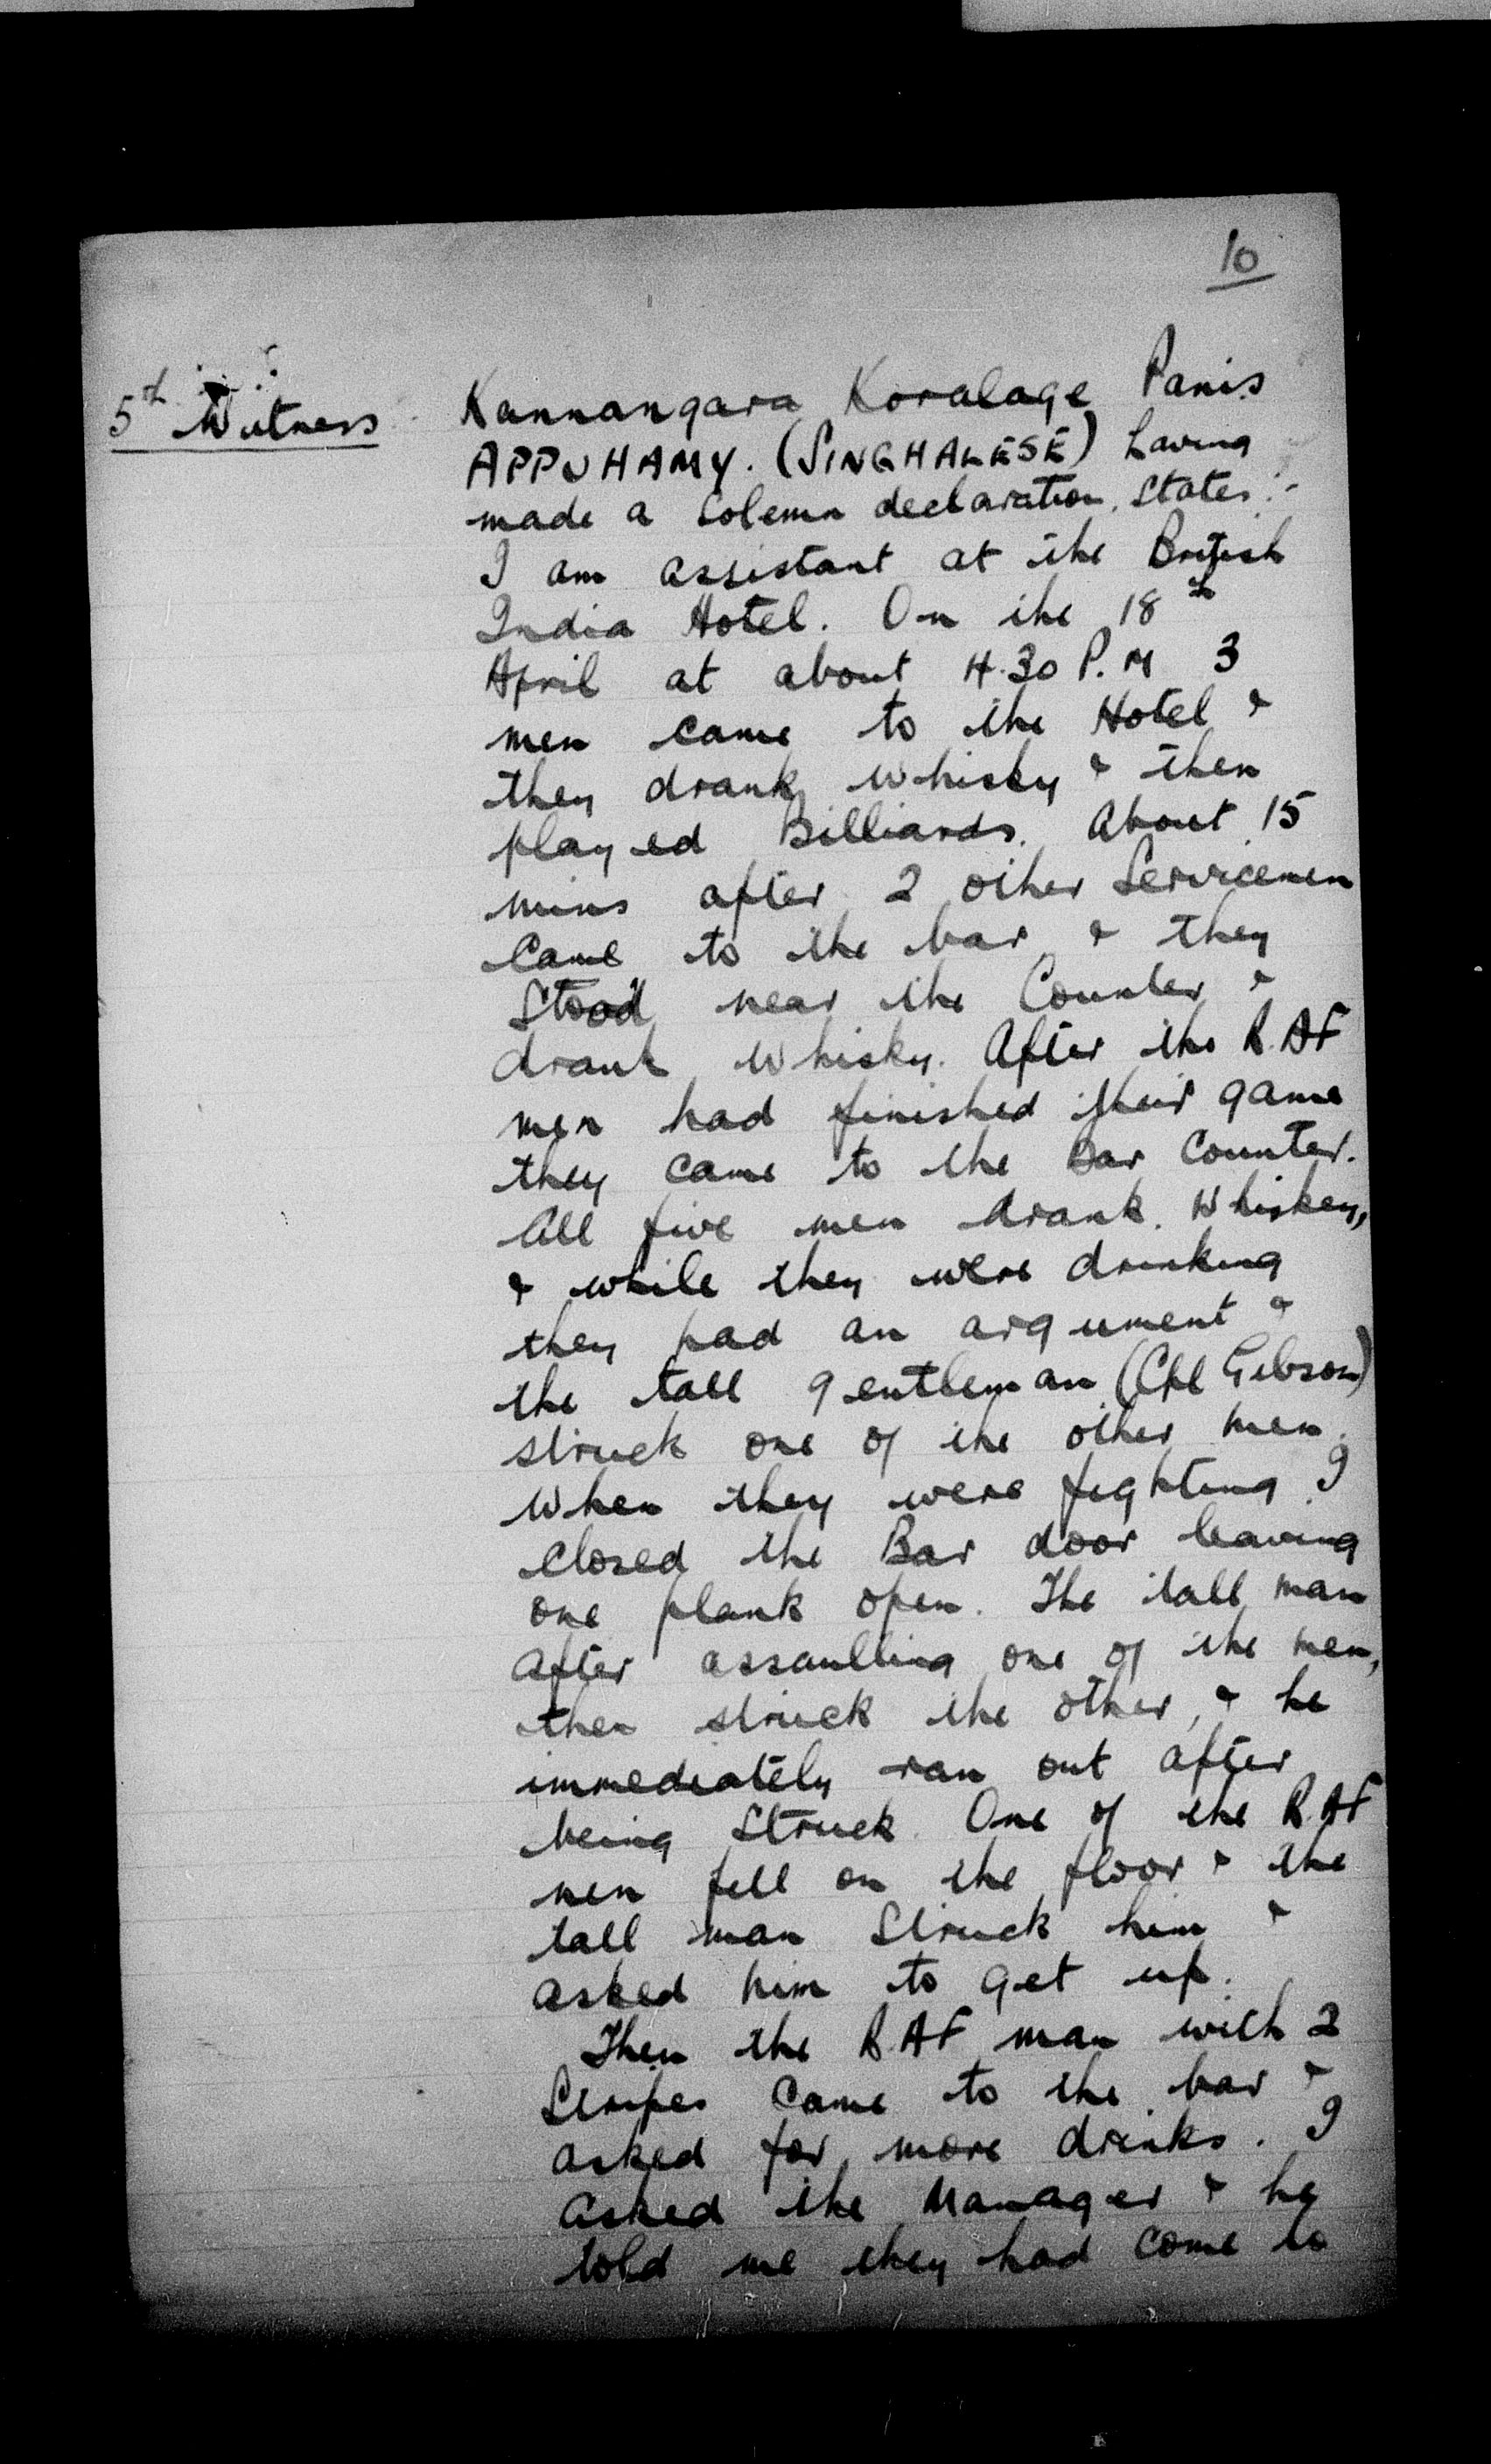 10
5th Witness
Kannangara Koralage Panis
APPUHAMY. (SINGHALESE) having
made a Solemn declaration, states:-
I am assistant at the British
India Hotel. On the 18th
April at about 4.30 P.M 3
men came to the Hotel &
they drank Whisky & then
played Billiards. About 15
mins after 2 other Servicemen
Came to the bar & they
Stood near the Counter &
drank Whisky. After the R.AF
men had finished their game
they came to the Bar Counter.
All five men drank Whiskey,
& while they were drinking
they had an argument &
the tall gentleman (Cpl Gibson)
struck one of the other men.
When they were fighting I
closed the Bar door leaving
one plank open. The tall man
after assaulting one of the men,
then struck the other, & he
immediately ran out after
being Struck. One of the R.AF
men fell on the floor & the
tall man Struck him &
asked him to get up.
Then the R.AF man with 2
Stripes came to the bar &
asked for more drinks. I
asked the Manager & he
told me they had come to